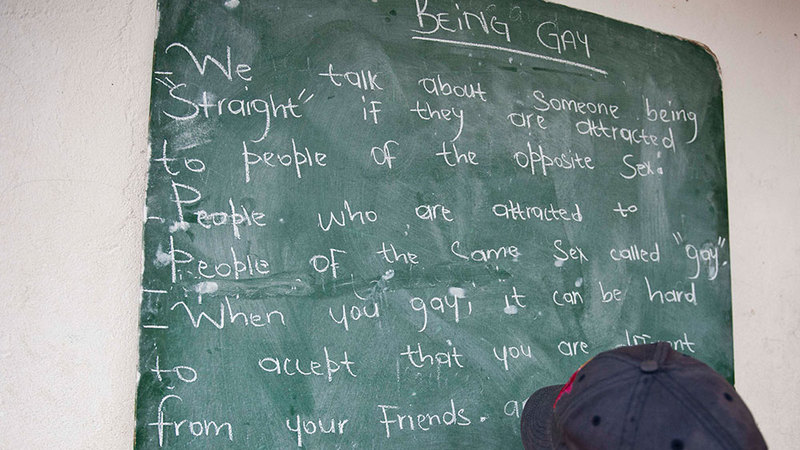 BEING GAY
- We talk about someone being
"Straight" if they are attracted
to people of the opposite Sex.
- People who are attracted to
People of the same Sex called "gay".
- When you gay, it can be hard
to accept that you are
from your Friends.